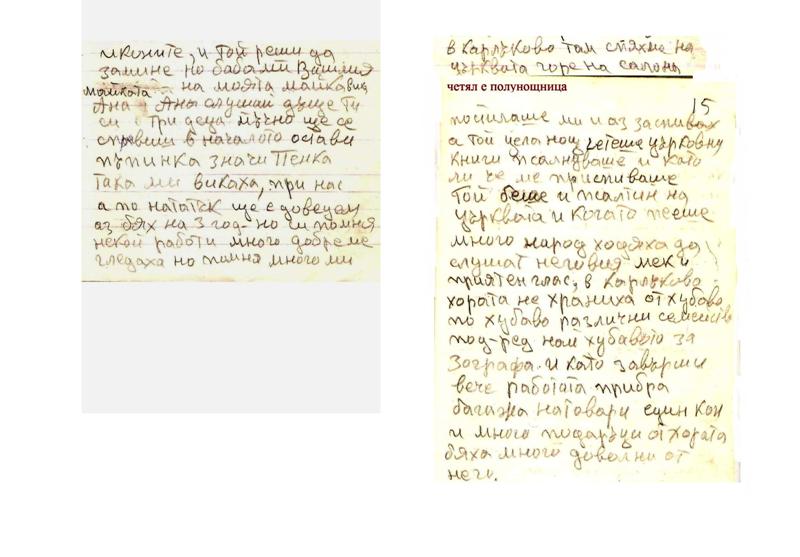 иконите, и той реши да
замине но баба ми Василия
майката на моята майка вика
Ана Ана слушай дъще ти
си с три деца мъчно ще се
справиш в началото остави
пъпинка значи Пенка
така ми викаха, при нас
а по нататък ще е доведем
аз бях на 3 год. но си помня
некой работи много добре ме
гледаха но помня много ми
в Карлуково там спяхме на
църквата горе на салона
четял е полунощница
15
попилаше ми и аз заспивах
а той цела нощ четеше църковни
книги псалнуваше и като
ли че ме приспиваше
той беше и псалтин на
църквата и когато пееше
много народ ходяха да
слушат неговия мек и
приятен глас, в Карлуково
хората не храниха от хубаво
по хубаво различни семейств
под-ред най хубавото за
Зографа. и като завърши
вече работата прибра
багажа натовари един кон
и много подаръци от хората
бяха много доволни от
него.